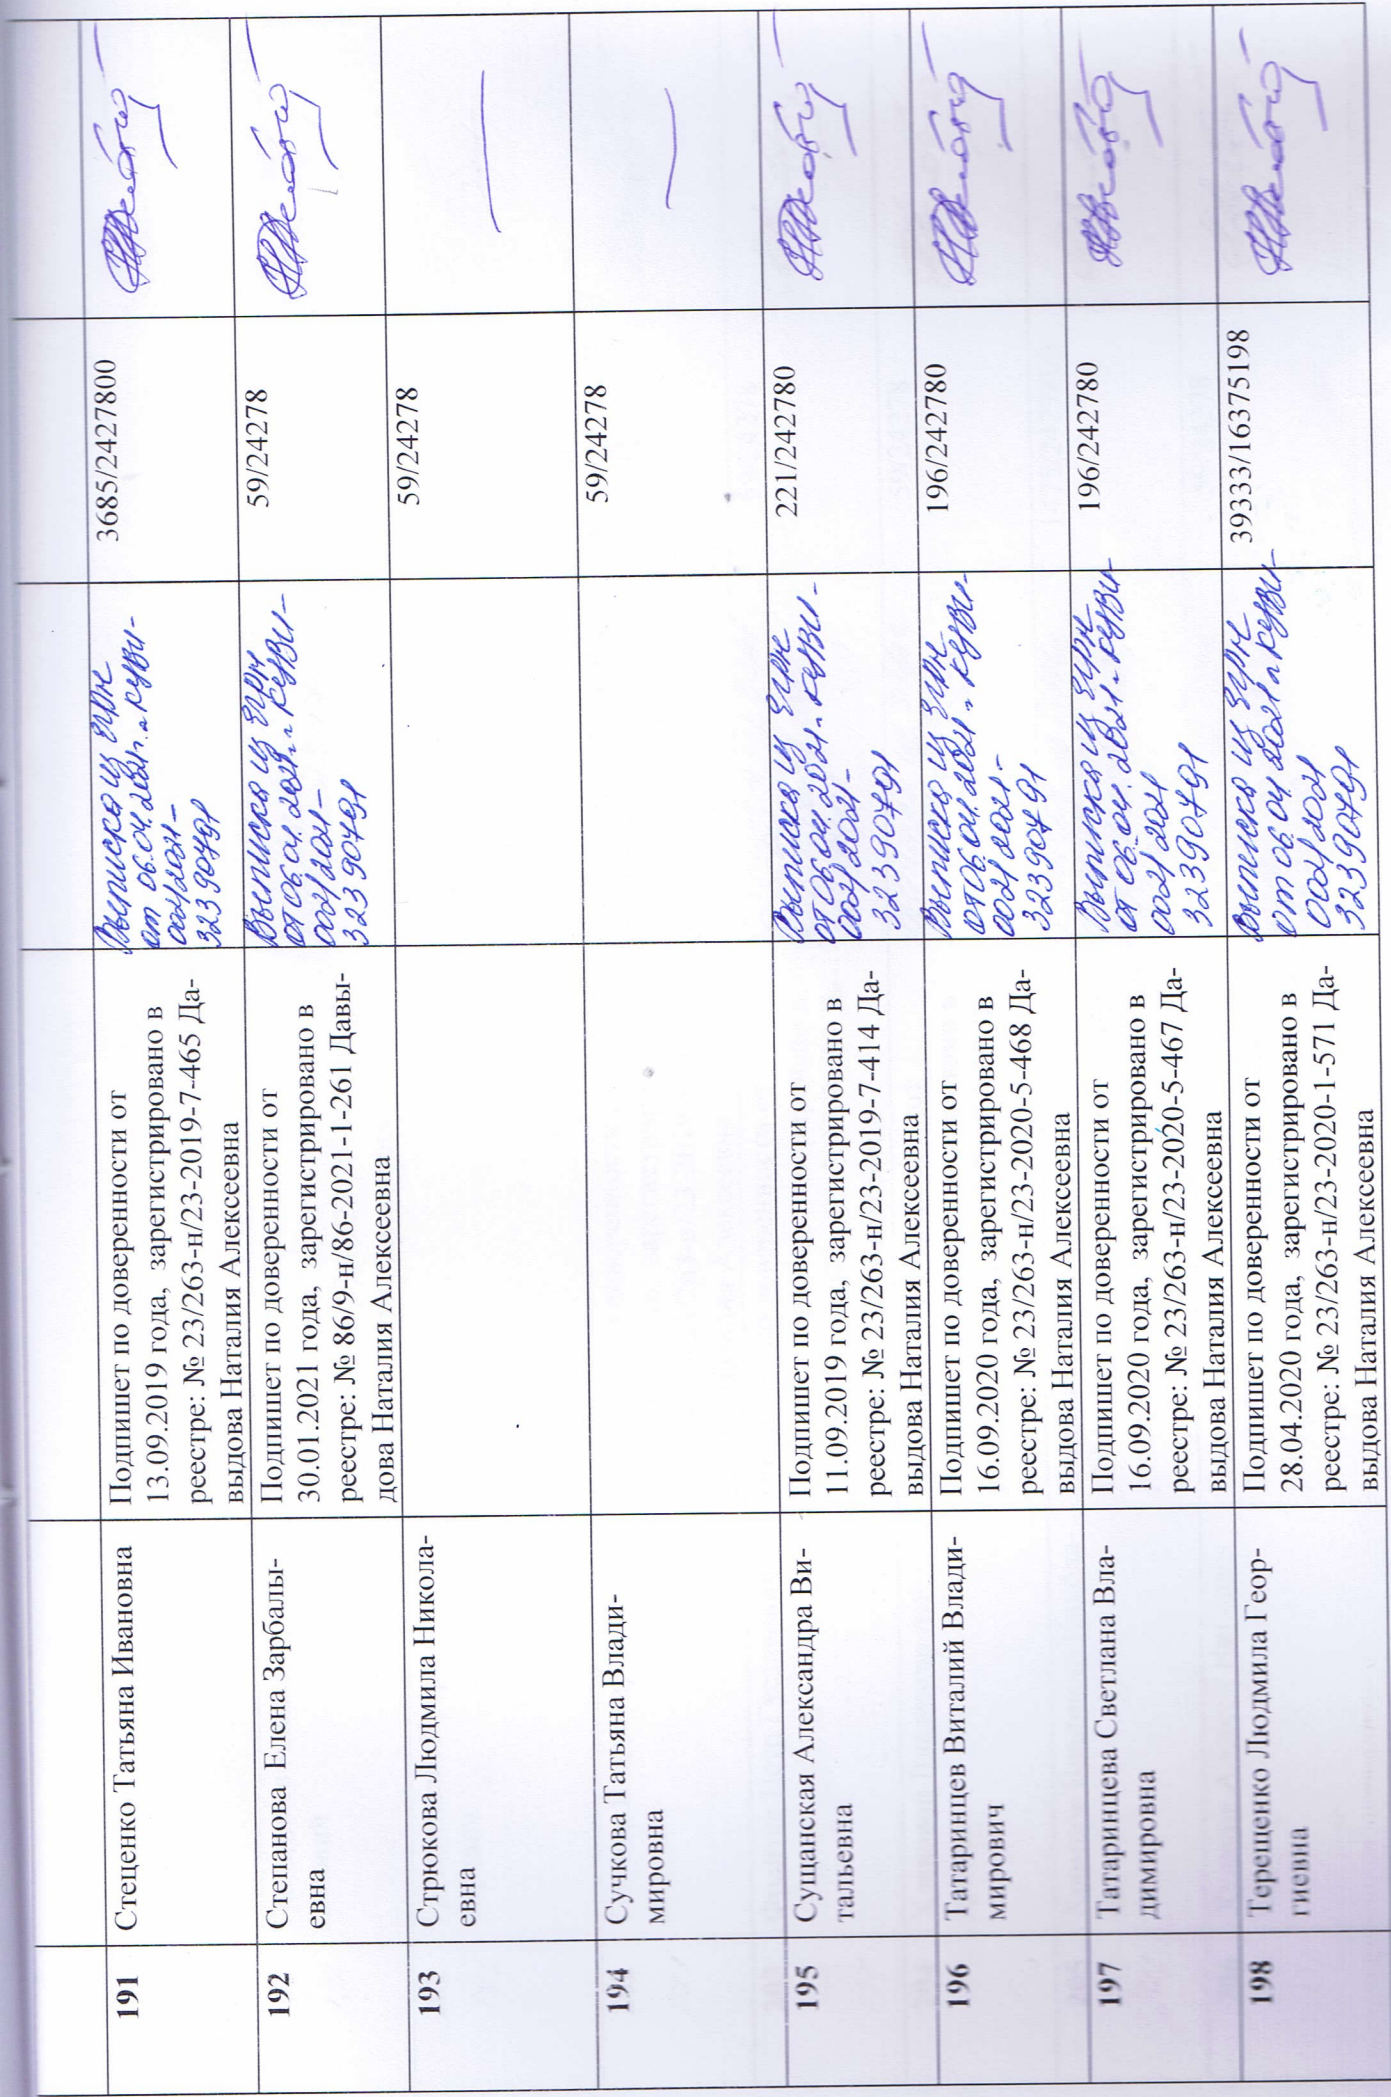 191
Стеценко Татьяна Ивановна
Подпишет по доверенности от
13.09.2019 года, зарегистрировано в
реестре: № 23/263-н/23-2019-7-465 Да-
выдова Наталия Алексеевна
Выписка из ЕГРН
от 06.04.2021г. № КУВИ-
002/2021-
32390791
3685/2427800
192
Степанова Елена Зарбалы-
евна
Подпишет по доверенности от
30.01.2021 года, зарегистрировано в
реестре: № 86/9-н/86-2021-1-261 Давы-
дова Наталия Алексеевна
Выписка из ЕГРН
от 06.04.2021г. № КУВИ-
002/2021-
32390791
59/24278
193
Стрюкова Людмила Никола-
евна
59/24278
194
Сучкова Татьяна Влади-
мировна
59/24278
195
Сущанская Александра Ви-
тальевна
Подпишет по доверенности от
11.09.2019 года, зарегистрировано в
реестре: № 23/263-н/23-2019-7-414 Да-
выдова Наталия Алексеевна
Выписка из ЕГРН
от 06.04.2021г. № КУВИ-
002/2021-
32390791
221/242780
196
Татаринцев Виталий Влади-
мирович
Подпишет по доверенности от
16.09.2020 года, зарегистрировано в
реестре: № 23/263-н/23-2020-5-468 Да-
выдова Наталия Алексеевна
Выписка из ЕГРН
от 06.04.2021г. № КУВИ-
002/2021-
32390791
196/242780
197
Татаринцева Светлана Вла-
димировна
Подпишет по доверенности от
16.09.2020 года, зарегистрировано в
реестре: № 23/263-н/23-2020-5-467 Да-
выдова Наталия Алексеевна
Выписка из ЕГРН
от 06.04.2021г. № КУВИ-
002/2021
32390791
196/242780
198
Терещенко Людмила Геор-
гиевна
Подпишет по доверенности от
28.04.2020 года, зарегистрировано в
реестре: № 23/263-н/23-2020-1-571 Да-
выдова Наталия Алексеевна
Выписка из ЕГРН
от 06.04.2021г. № КУВИ-
002/2021
32390791
39333/16375198